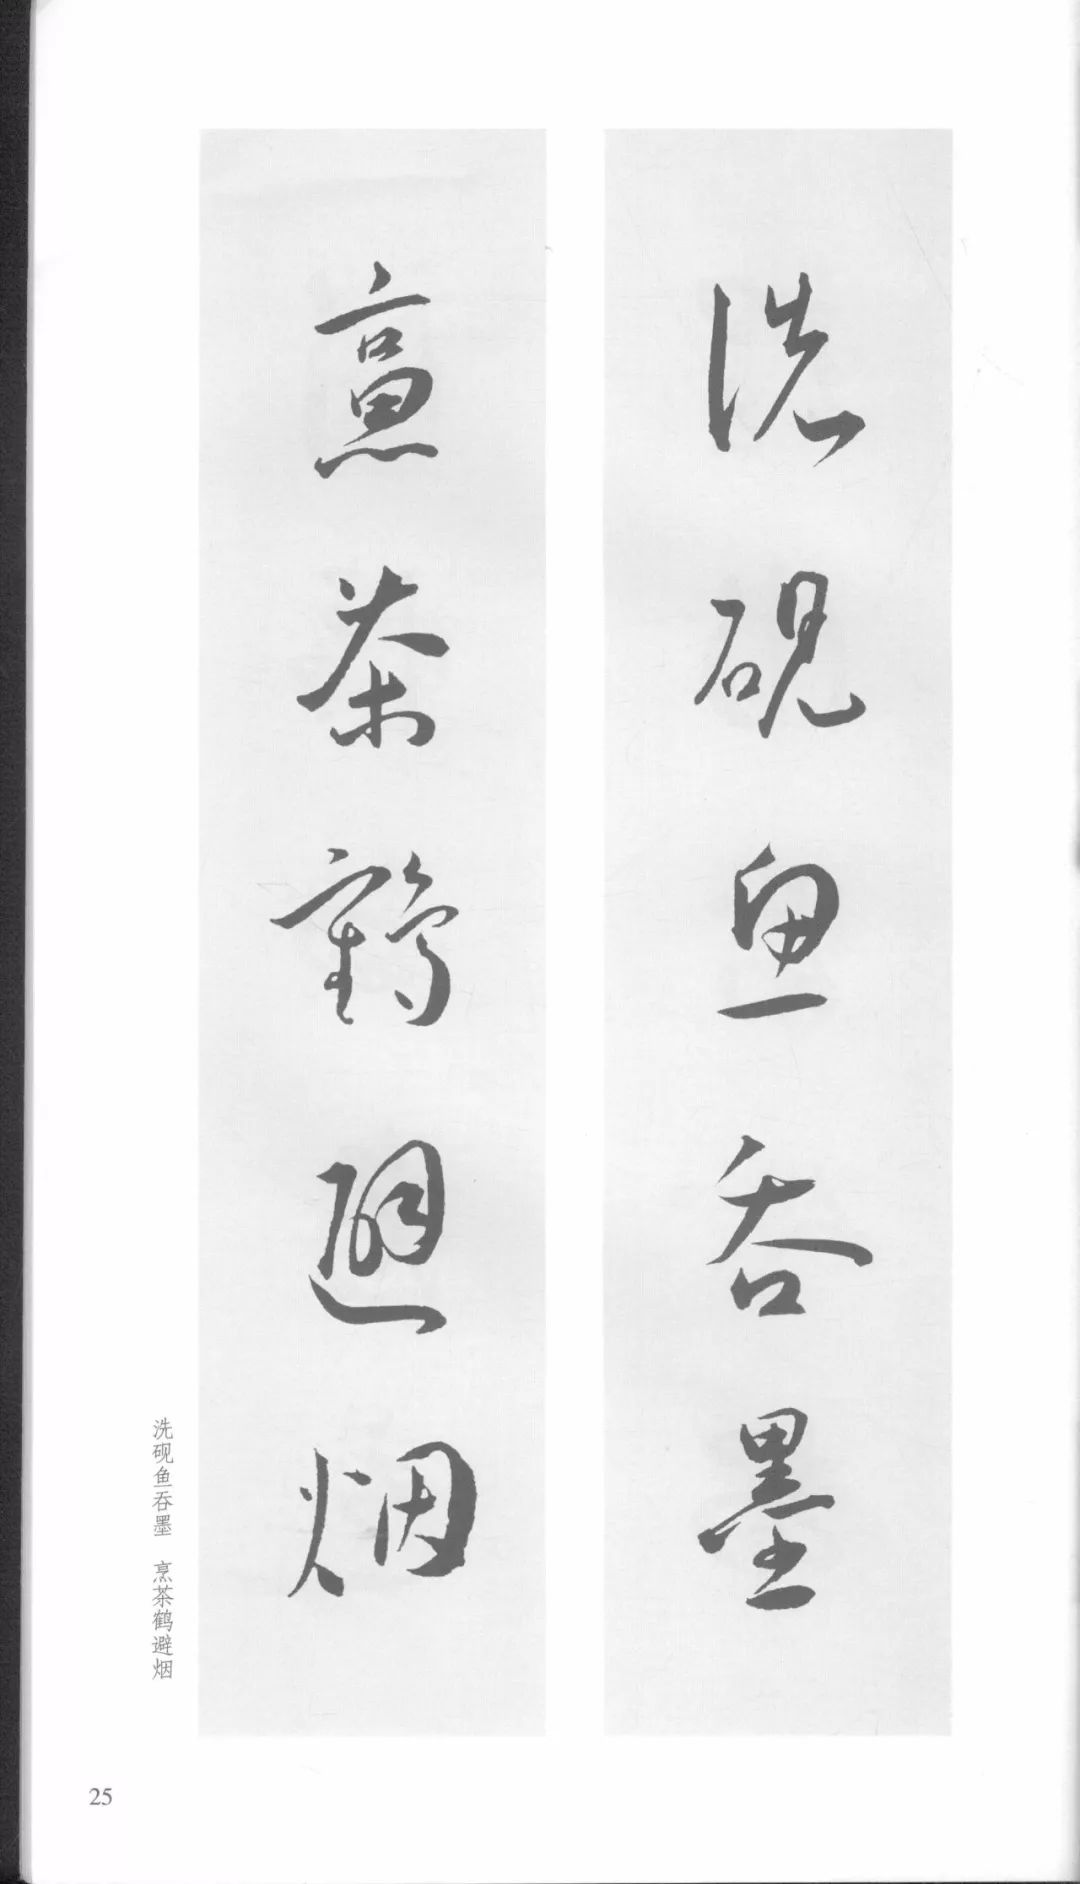 洗砚鱼吞墨
烹茶鹤避烟
洗砚鱼吞墨 烹茶鹤避烟
25